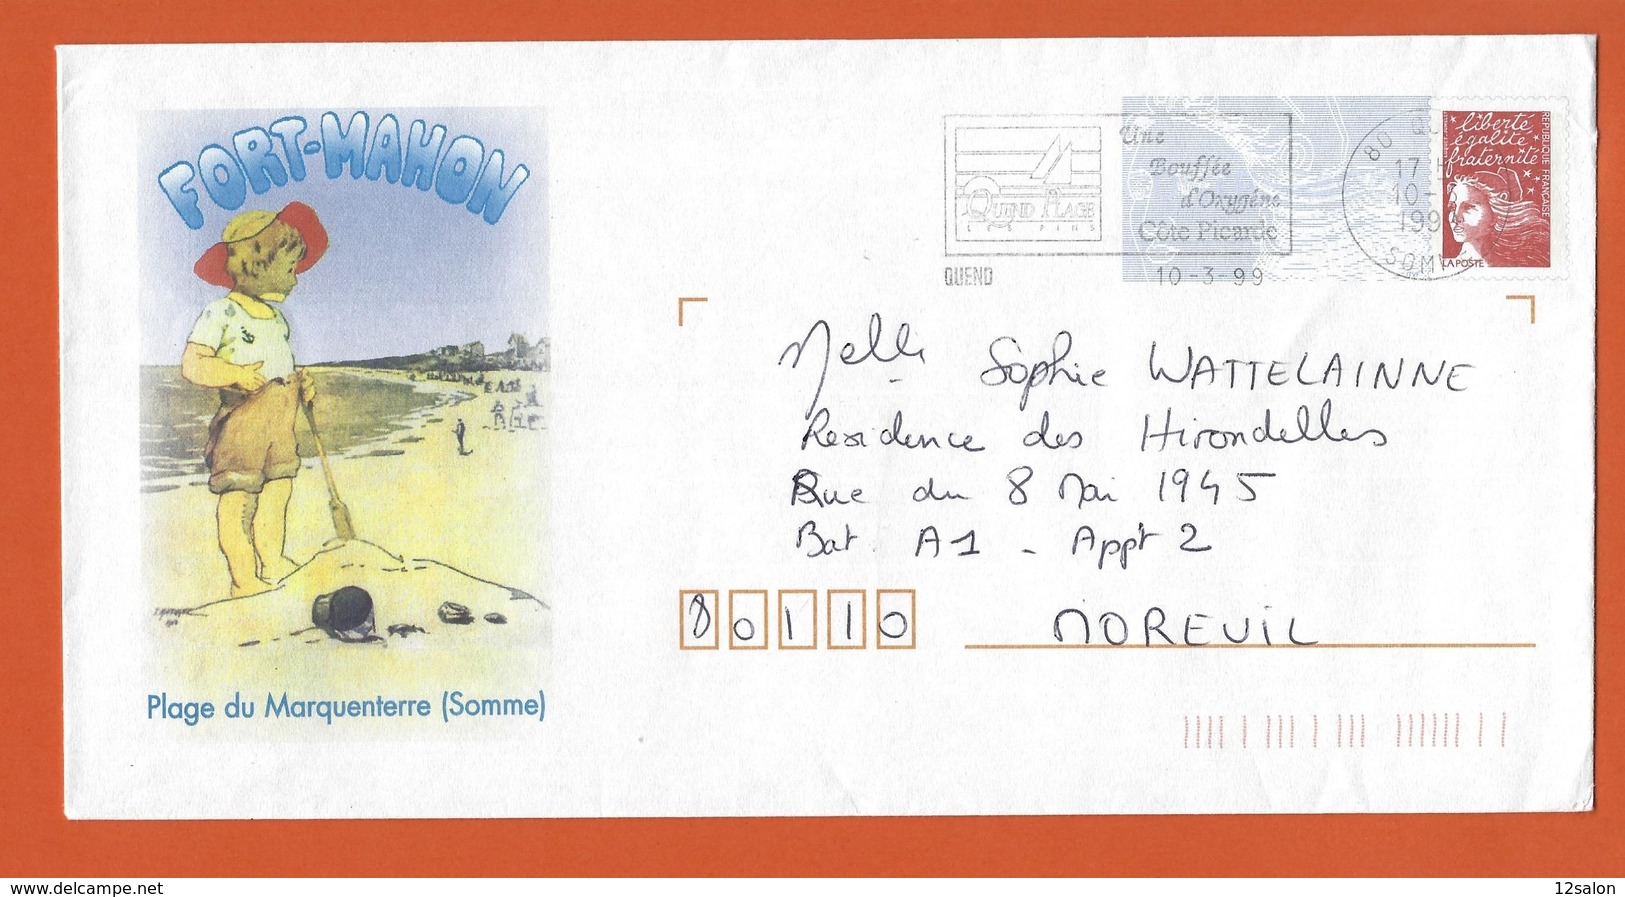 FORT-MAHON
Plage du Marquenterre (Somme)
QUEND PLAGE
LES PINS
Une
Bouffée
d'Oxygène
Côte Picarde
QUEND
10-3-99
80
17
10-
199
SOM
liberté
égalité
fraternité
REPUBLIQUE FRANÇAISE
LA POSTE
Melle Sophie WATTELAINNE
Residence des Hirondelles
Rue du 8 Mai 1945
Bat A1 - Appt 2
80110 MOREUIL
www.delcampe.net
12salon